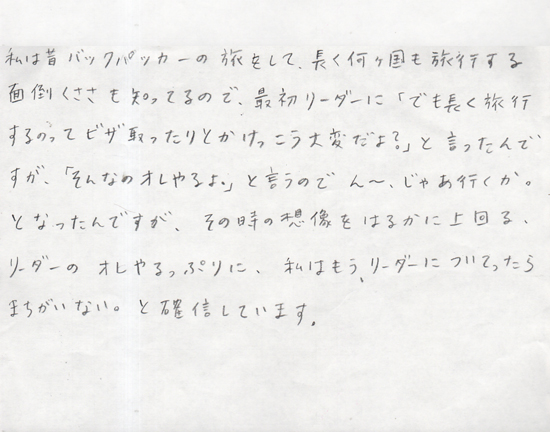 私は昔バックパッカーの旅をして、長く何ヶ国も旅行する
面倒くささも知ってるので、最初リーダーに「でも長く旅行
するのってビザ取ったりとかけっこう大変だよ?」と言ったんで
すが、「そんなのオレやるよ。」と言うので ん〜、じゃあ行くか。
となったんですが、その時の想像をはるかに上回る、
リーダーの オレやるっぷりに、私はもう、リーダーについてったら
まちがいない。と確信しています。